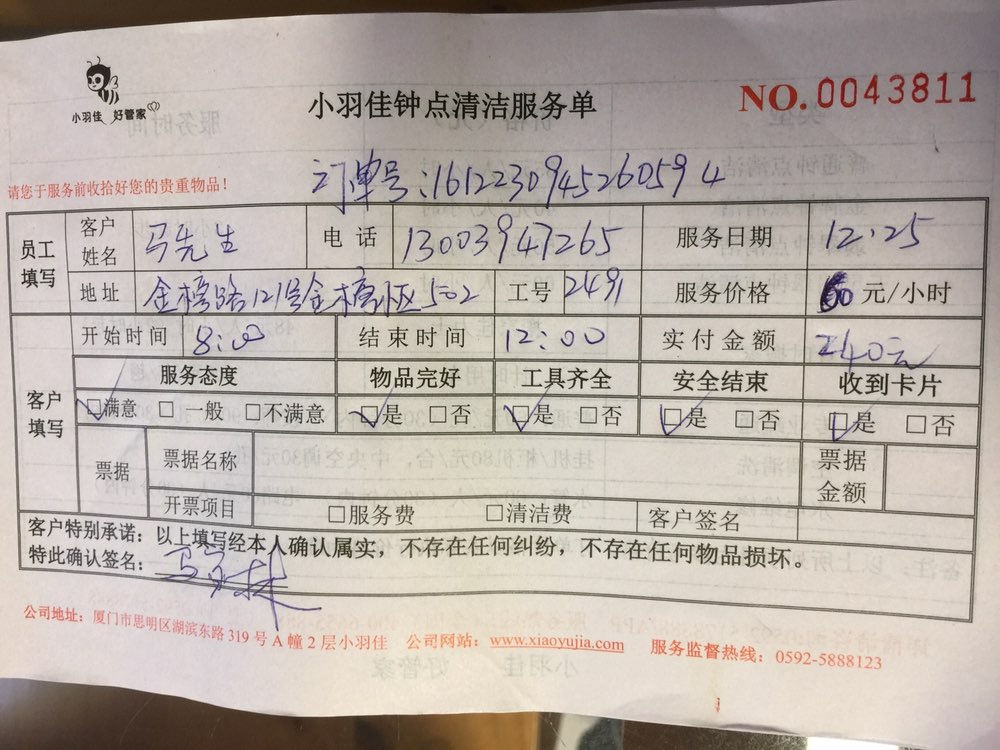 小羽佳 好管家
小羽佳钟点清洁服务单
NO.0043811
订单号:1612230945260594
请您于服务前收拾好您的贵重物品!
员工填写 客户姓名 马先生 电话 13003947265 服务日期 12.25
地址 金榜路121号金榜 502 工号 2491 服务价格 60 元/小时
开始时间 8:00 结束时间 12:00 实付金额 240元
客户填写 服务态度 物品完好 工具齐全 安全结束 收到卡片
☑满意 □一般 □不满意 ☑是 □否 ☑是 □否 ☑是 □否 ☑是 □否
票据 票据名称 票据金额
开票项目 □服务费 □清洁费 客户签名
客户特别承诺:以上填写经本人确认属实,不存在任何纠纷,不存在任何物品损坏。
特此确认签名: 马
公司地址:厦门市思明区湖滨东路 319 号 A 幢 2 层小羽佳 公司网站:www.xiaoyujia.com 服务监督热线:0592-5888123